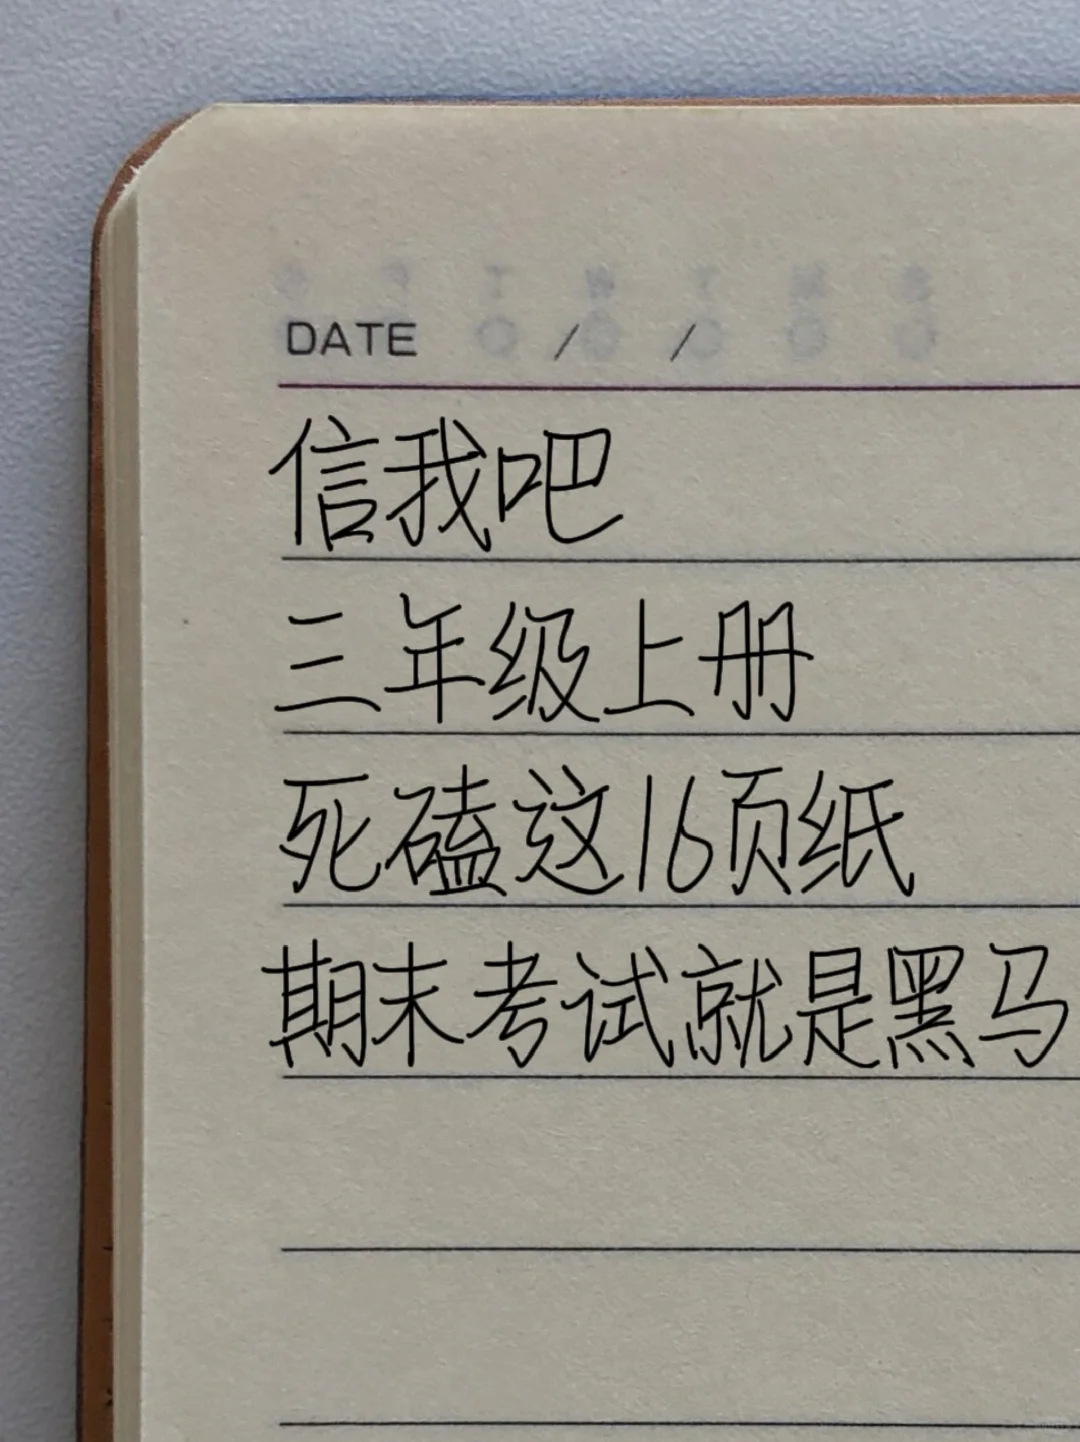 DATE / /
信我吧
三年级上册
死磕这16页纸
期末考试就是黑马